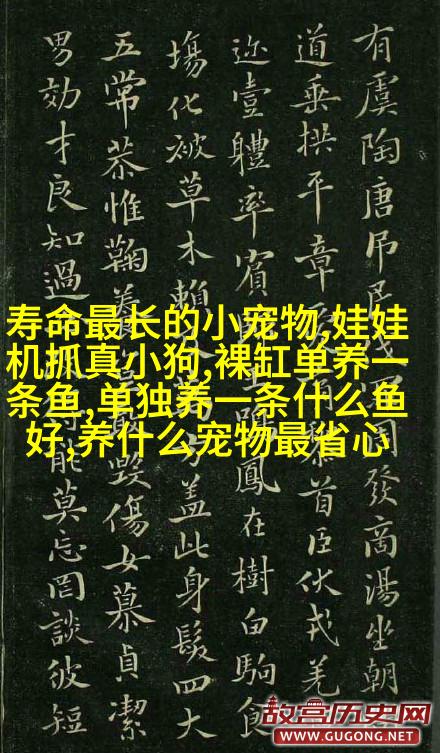 有虞陶唐吊民伐周發商湯坐朝
道垂拱平章愛首臣伏戎羌
迩壹體率賓歸王鳳在樹白駒食
場化被草木賴及方蓋此身髮四大
五常恭惟鞠養毀傷女慕貞潔
男効才良知過得能莫忘罔談彼短
寿命最长的小宠物,娃娃
机抓真小狗,裸缸单养一
条鱼,单独养一条什么鱼
好,养什么宠物最省心
故宫历史网
WWW.GUGONG.NET